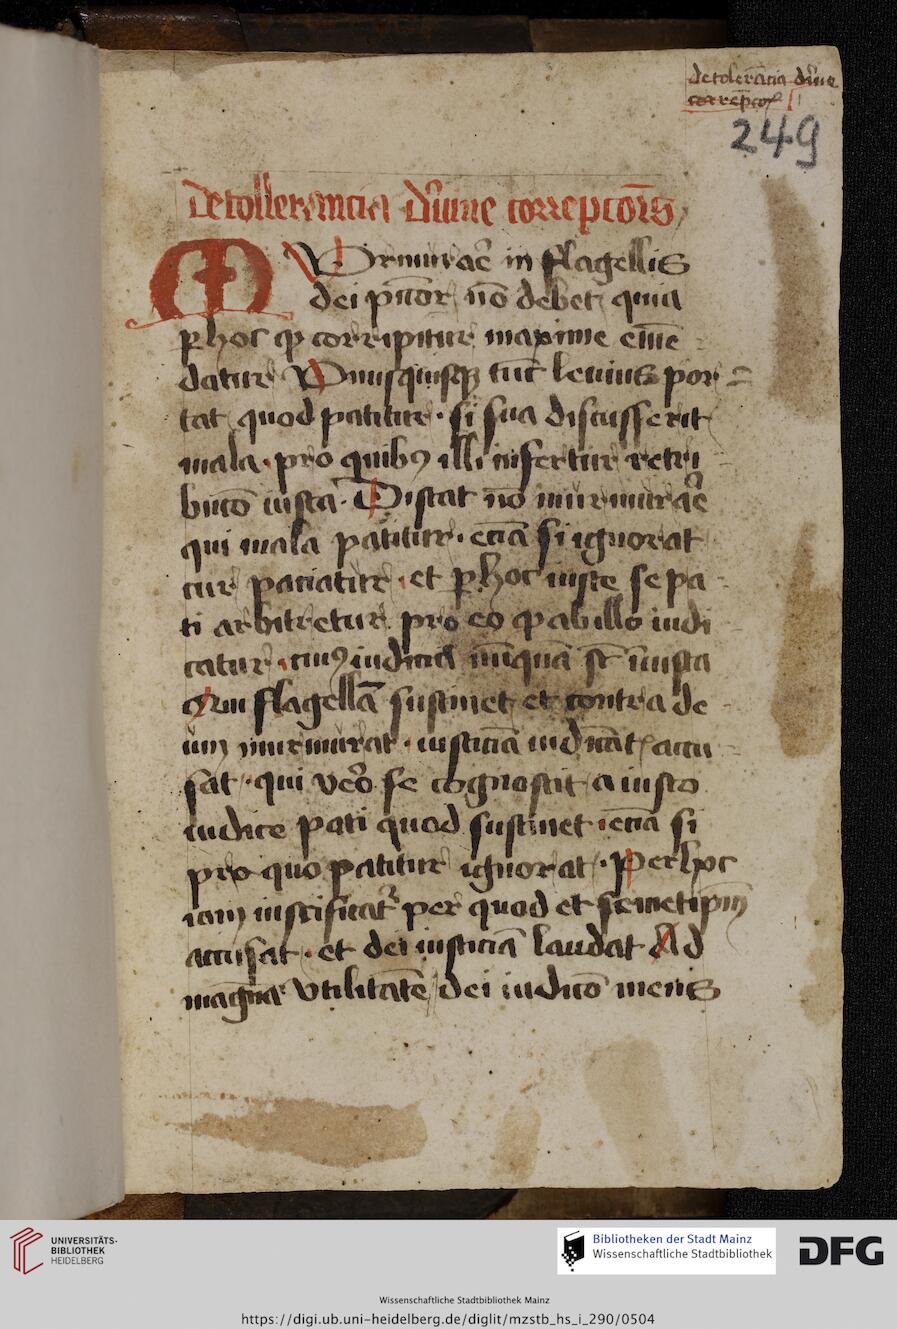 de tolerācia diuine
correpcōis
249
De tollerancia diuine correpcōis
Murmurare in flagellis
dei pctor nō debet quia
per hoc qp corripitur maxime emē
datur Vnusquisqꝫ tūc leuius por
tat quod patitur · si sua discusserit
mala · pro quibꝯ illi infertur retri
bucō iusta · Distat nō murmurare
qui mala patitur · eciā si ignorat
cur paciatur · et per hoc iuste se pa
ti arbitretur pro eo qp ab illo iudi
catur · cuiꝯ iudicia nūquā st̄ iniusta
Qui flagellā sustinet et contra de
um murmurat · iusticiā iudicāt accu
sat · qui vero se cognoscit a iusto
iudice pati quod sustinet · eciā si
pro quo patitur ignorat · Per hoc
iam iustificatr per quod et semetipm̄
accusat · et dei iusticiā laudat Ad
magnā vtilitatē dei iudicō mens
UNIVERSITÄTS-
BIBLIOTHEK
HEIDELBERG
Bibliotheken der Stadt Mainz
Wissenschaftliche Stadtbibliothek
DFG
Wissenschaftliche Stadtbibliothek Mainz
https://digi.ub.uni-heidelberg.de/diglit/mzstb_hs_i_290/0504